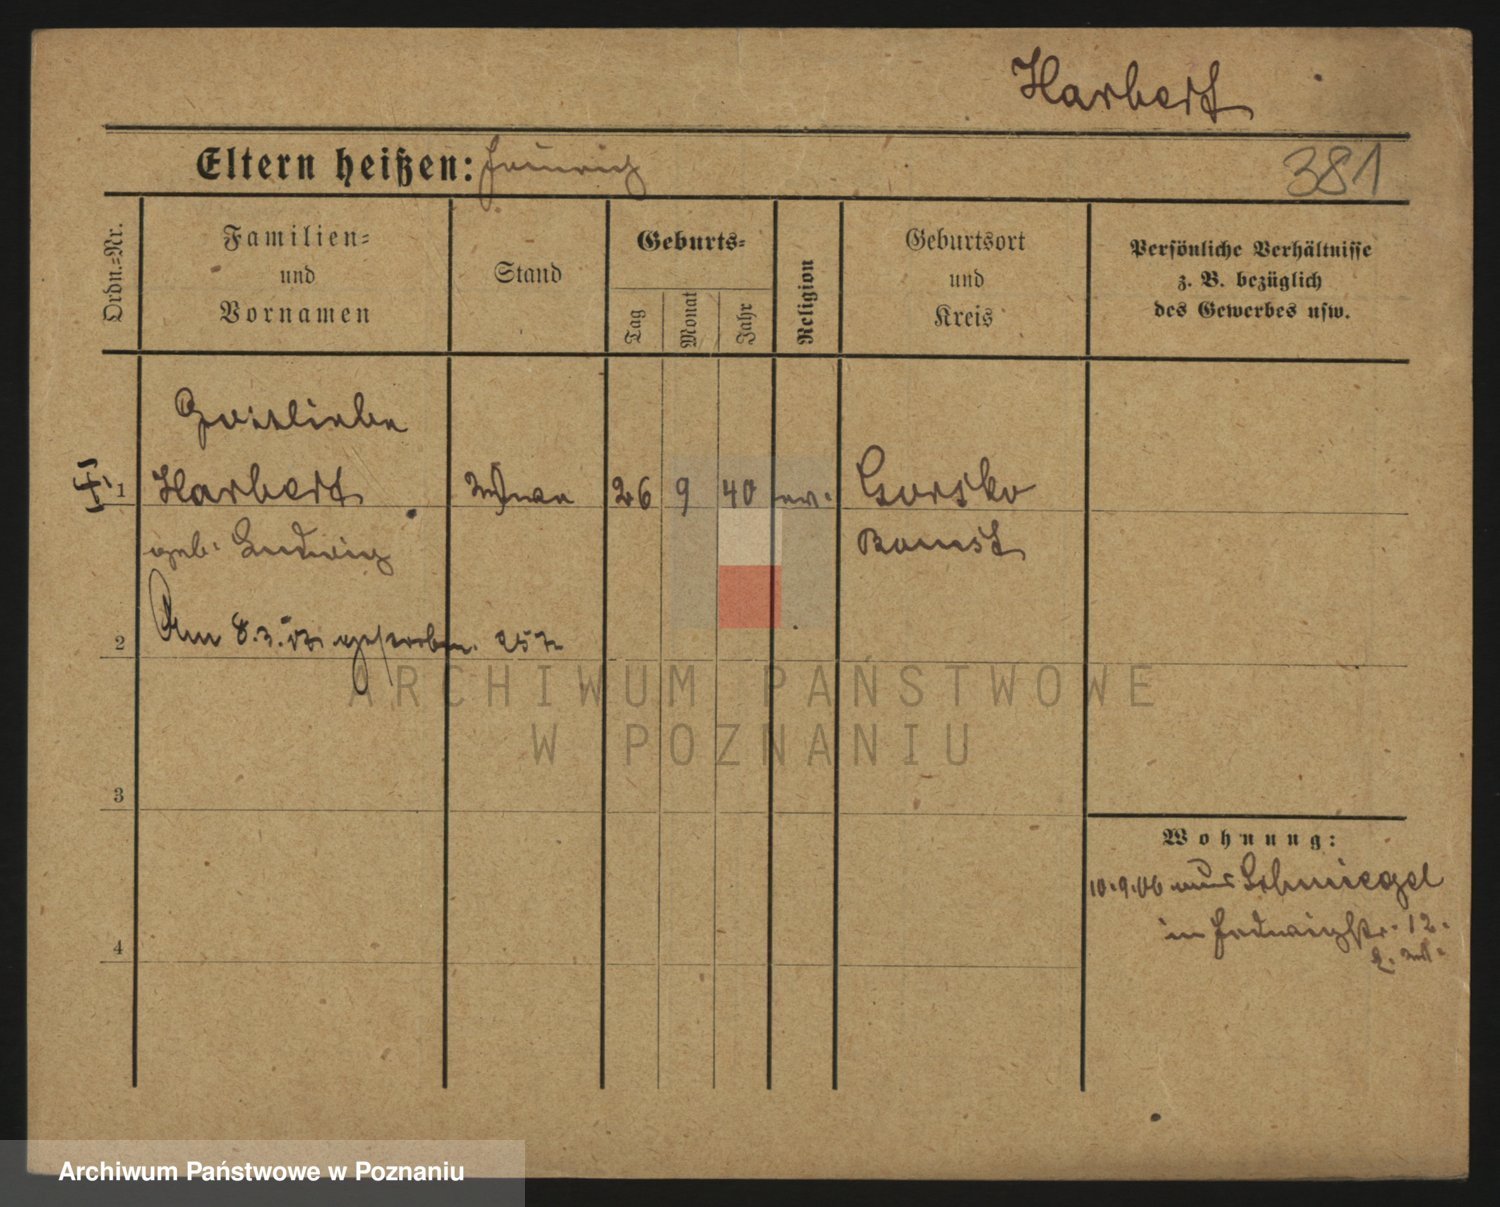 Harbert
Eltern heißen: Heinrich
381
Ordn.=Nr.
Familien=
und
Vornamen
Stand
Geburts=
Tag
Monat
Jahr
Religion
Geburtsort
und
Kreis
Persönliche Verhältnisse
z. B. bezüglich
des Gewerbes usw.
Gottliebe
1 Harbert Witwe 26 9 40 ev. Gorsko
geb. Ludwig Bomst
2 Am 8.3. gestorben. 257
3
4
Wohnung:
10.9.06 aus Schmiegel
in Hedwigstr. 12.
ARCHIWUM PAŃSTWOWE
W POZNANIU
Archiwum Państwowe w Poznaniu